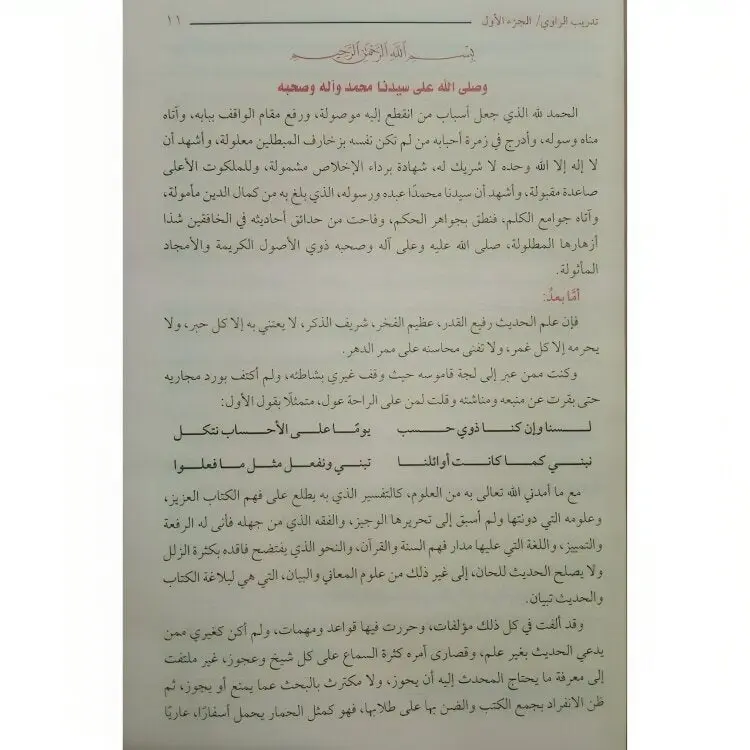 تدريب الراوي/ الجزء الأول ١١
بسم الله الرحمن الرحيم
وصلى الله على سيدنا محمد وآله وصحبه
الحمد لله الذي جعل أسباب من انقطع إليه موصولة، ورفع مقام الواقف ببابه، وآتاه
مناه وسوله، وأدرج في زمرة أحبابه من لم تكن نفسه بزخارف المبطلين معلولة، وأشهد أن
لا إله إلا الله وحده لا شريك له، شهادة برداء الإخلاص مشمولة، وللملكوت الأعلى
صاعدة مقبولة، وأشهد أن سيدنا محمدًا عبده ورسوله، الذي بلغ به من كمال الدين مأموله،
وآتاه جوامع الكلم، فنطق بجواهر الحكم، وفاحت من حدائق أحاديثه في الخافقين شذا
أزهارها المطلولة، صلى الله عليه وعلى آله وصحبه ذوي الأصول الكريمة والأمجاد
المأثولة.
أمَّا بعدُ:
فإن علم الحديث رفيع القدر، عظيم الفخر، شريف الذكر، لا يعتني به إلا كل حبر، ولا
يحرمه إلا كل غمر، ولا تفنى محاسنه على ممر الدهر.
وكنت ممن عبر إلى لجة قاموسه حيث وقف غيري بشاطئه، ولم أكتف بورد مجاريه
حتى بقرت عن منبعه ومناشئه وقلت لمن على الراحة عول، متمثلًا بقول الأول:
لسنا وإن كنا ذوي حسب يومًا على الأحساب نتكل
نبني كما كانت أوائلنا تبني ونفعل مثل ما فعلوا
مع ما أمدني الله تعالى به من العلوم، كالتفسير الذي به يطلع على فهم الكتاب العزيز،
وعلومه التي دونتها ولم أسبق إلى تحريرها الوجيز، والفقه الذي من جهله فأنى له الرفعة
والتمييز، واللغة التي عليها مدار فهم السنة والقرآن، والنحو الذي يفتضح فاقده بكثرة الزلل
ولا يصلح الحديث للحان، إلى غير ذلك من علوم المعاني والبيان، التي هي لبلاغة الكتاب
والحديث تبيان.
وقد ألفت في كل ذلك مؤلفات، وحررت فيها قواعد ومهمات، ولم أكن كغيري ممن
يدعي الحديث بغير علم، وقصارى أمره كثرة السماع على كل شيخ وعجوز، غير ملتفت
إلى معرفة ما يحتاج المحدث إليه أن يحوز، ولا مكترث بالبحث عما يمنع أو يجوز، ثم
ظن الانفراد بجمع الكتب والضن بها على طلابها، فهو كمثل الحمار يحمل أسفارًا، عاريًا